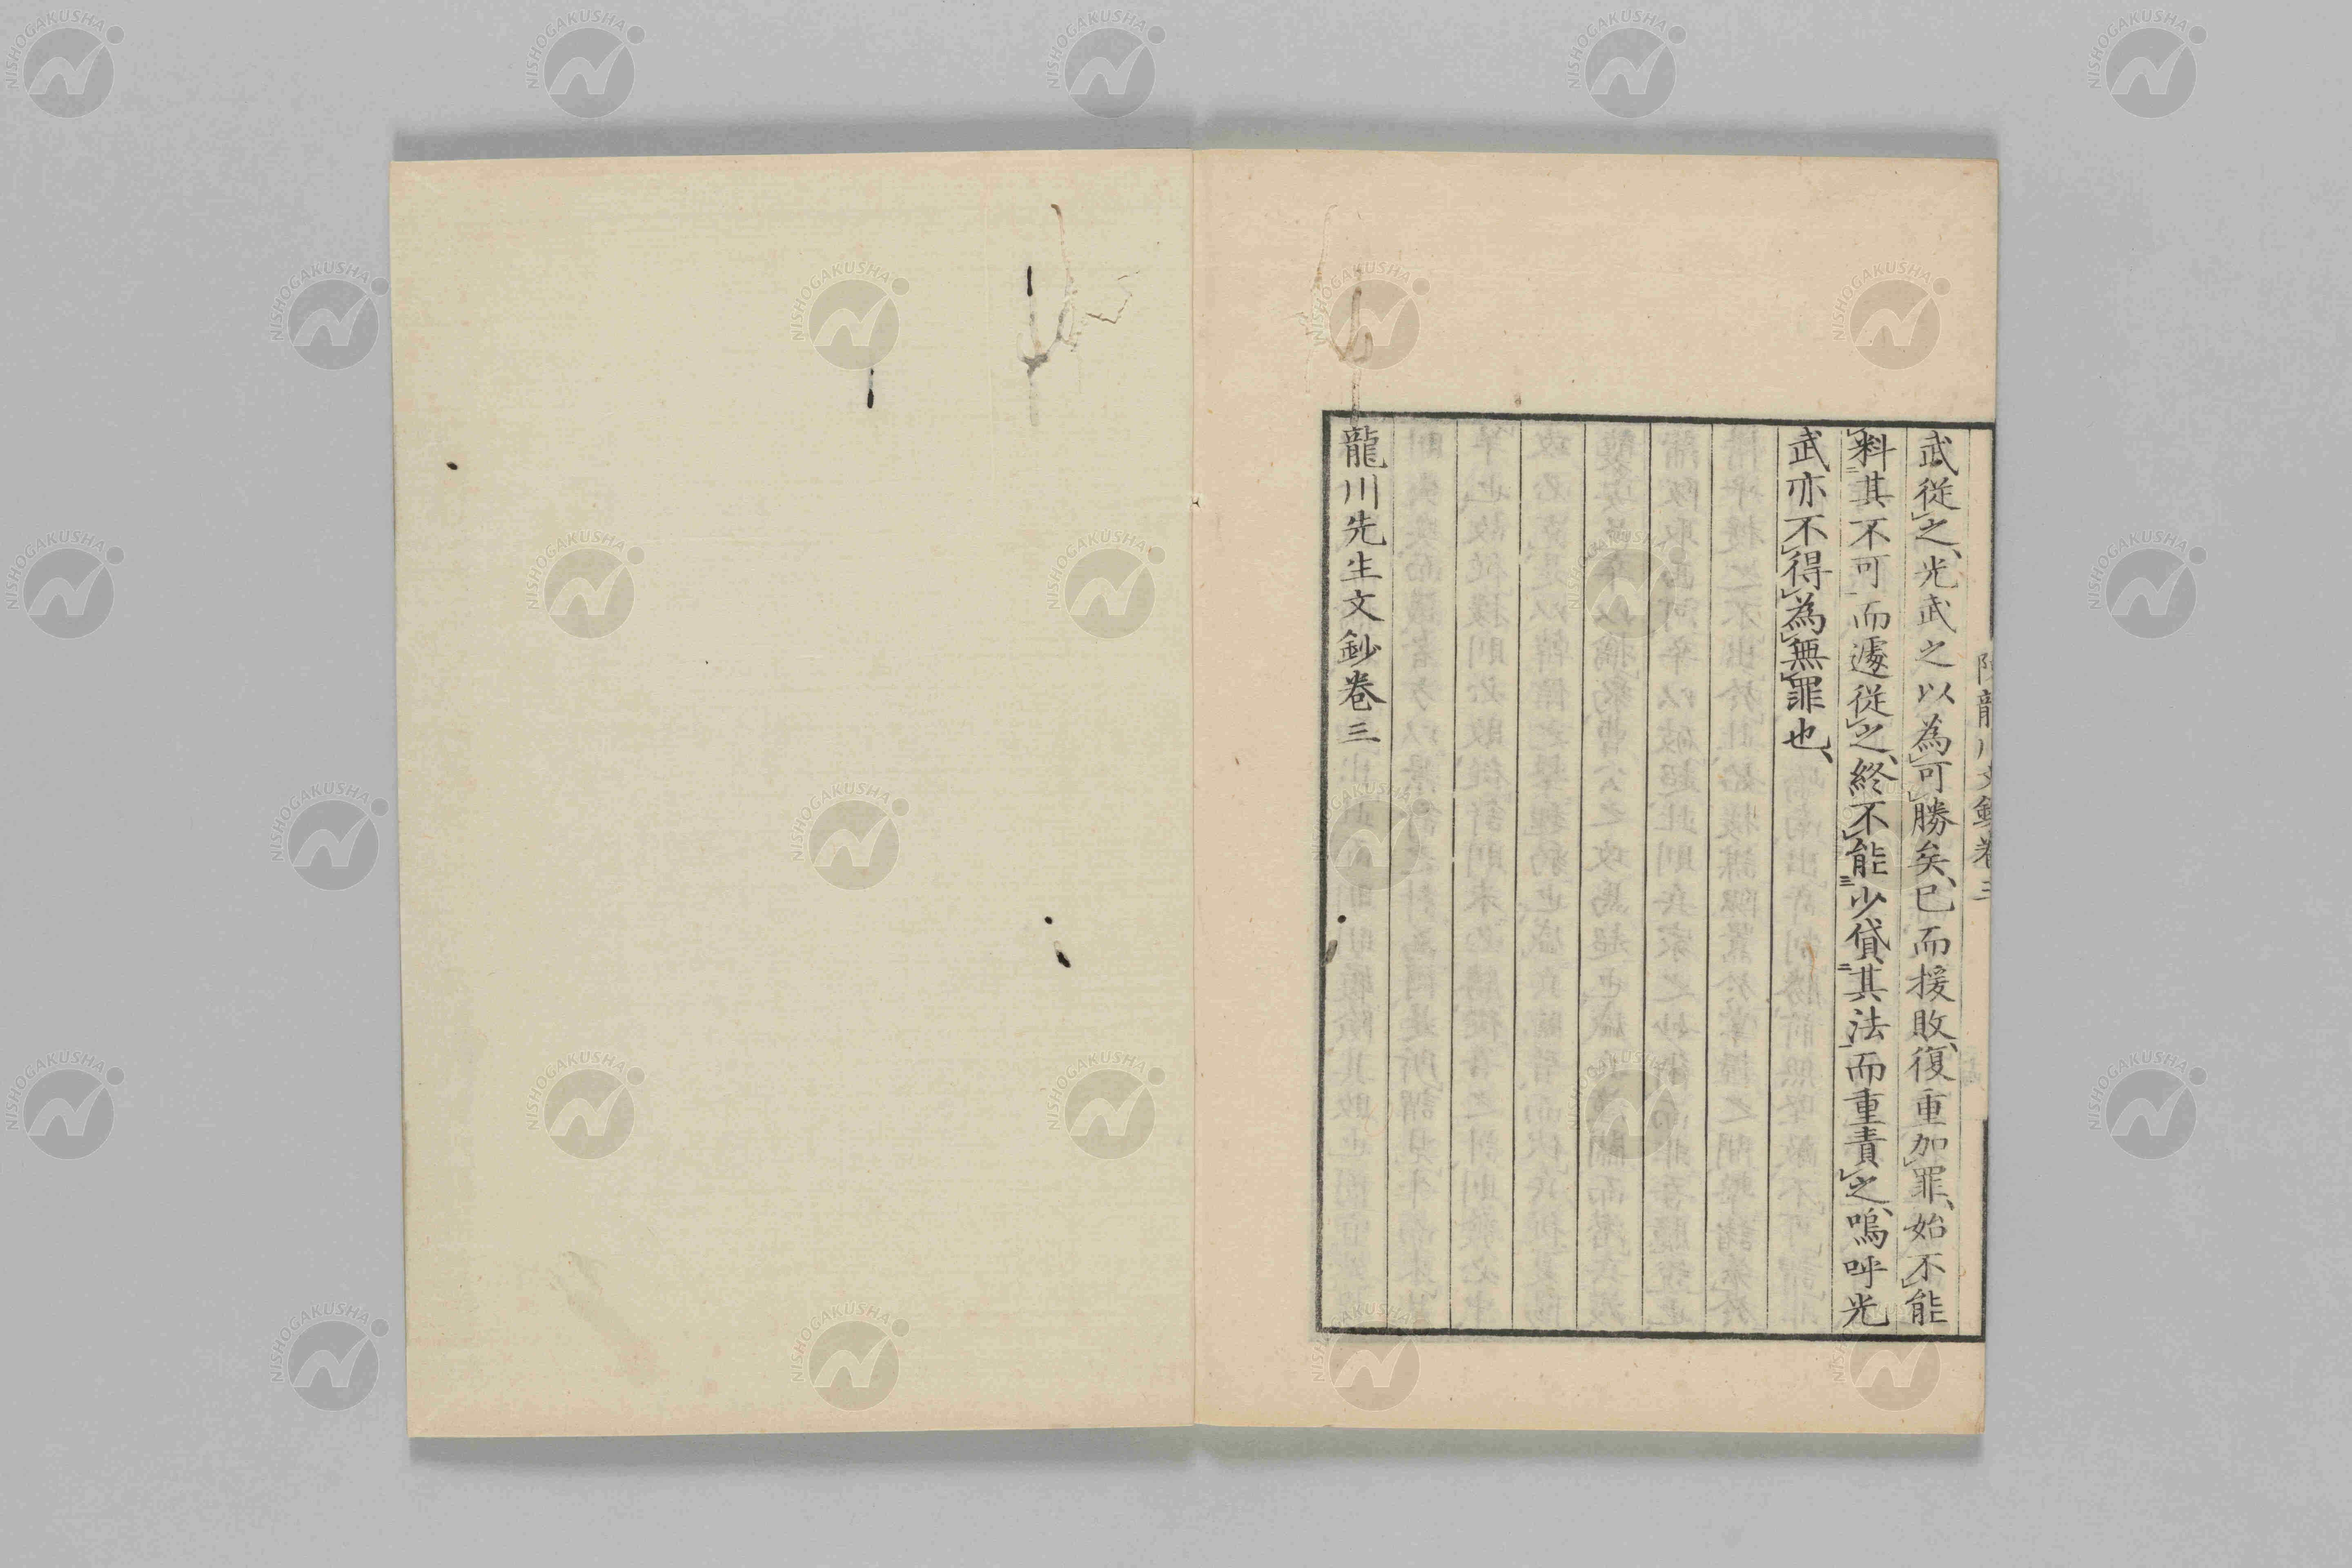 陳龍川文鈔卷三
武從之、光武之以為可勝矣、已而援敗、復重加罪、始不能
料其不可而遽從之、終不能少貸其法而重責之、嗚呼光
武亦不得為無罪也、
龍川先生文鈔卷三
NISHOGAKUSHA